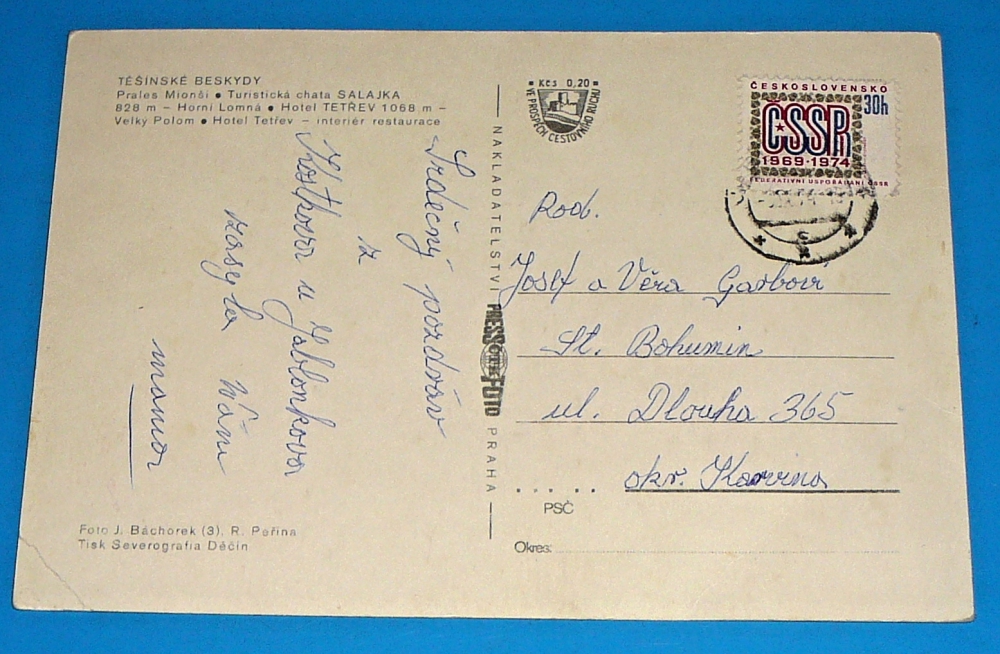 TĚŠÍNSKÉ BESKYDY
Prales Mionší • Turistická chata SALAJKA
828 m – Horní Lomná • Hotel TETŘEV 1068 m –
Velký Polom • Hotel Tetřev – interiér restaurace
Srdečný pozdrav
z
u Jablonkova
zasýlá Vám
Foto J. Báchorek (3), R. Peřina
Tisk Severografia Děčín
NAKLADATELSTVÍ PRESSFOTO PRAHA
ČTK
• Kčs 0,20 •
VE PROSPĚCH CESTOVNÍHO RUCHU
ČESKOSLOVENSKO
30h
ČSSR
1969-1974
FEDERATIVNÍ USPOŘÁDÁNÍ ČSSR
Rod.
Josef a Věra Garbovi
St. Bohumín
ul. Dlouhá 365
okr. Karviná
PSČ
Okres: